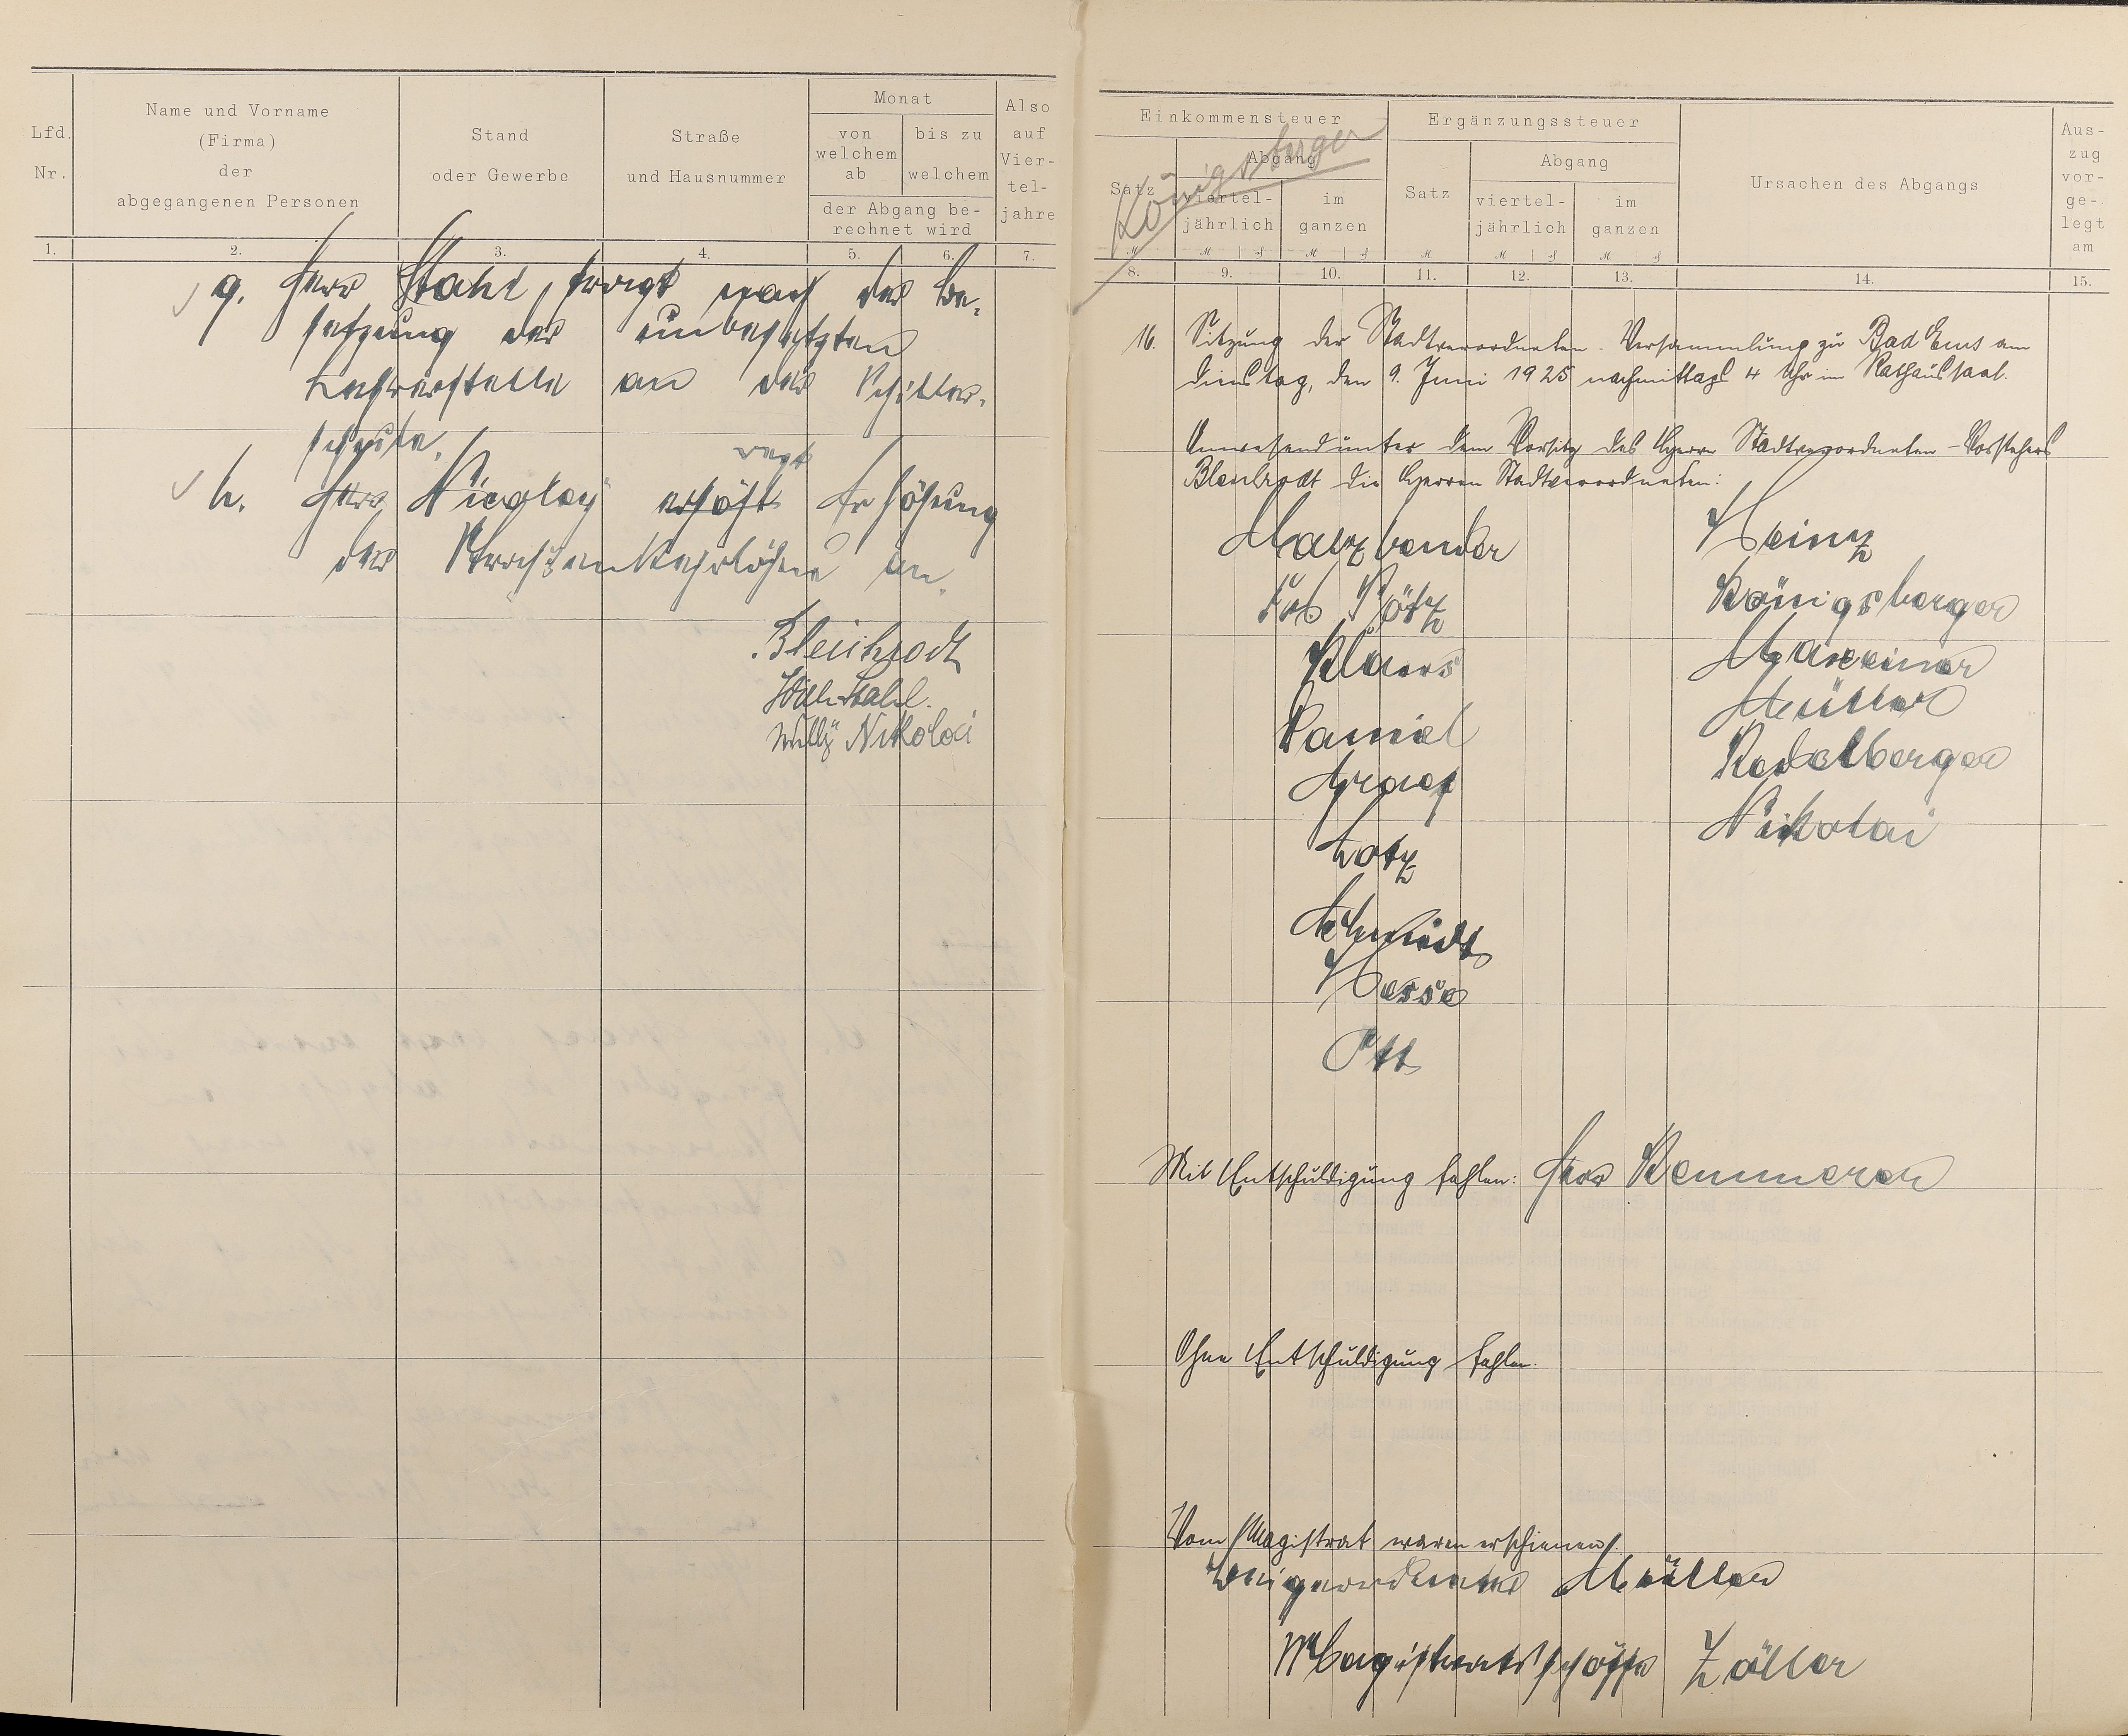 Lfd. Nr.
Name und Vorname
(Firma)
der
abgegangenen Personen
Stand
oder Gewerbe
Straße
und Hausnummer
Monat
von welchem ab
bis zu welchem
der Abgang be-
rechnet wird
Also auf Vier-tel-jahre
1. 2. 3. 4. 5. 6. 7.
g. Herr Stahl fragt nach der Be-
setzung der unbesetzten
Lehrerstelle an der Schiller-
schule.
h. Herr Nicolay erhöht Erhöhung
der Strassenkehrlöhne an.
Bleichrodt
Wilh. Stahl.
Willy Nikolai
Einkommensteuer
Satz
Abgang
viertel-
jährlich
im
ganzen
Königsberger
Ergänzungssteuer
Satz
Abgang
viertel-
jährlich
im
ganzen
Ursachen des Abgangs
Aus-
zug
vor-
ge-
legt
am
8. 9. 10. 11. 12. 13. 14. 15.
16. Sitzung der Stadtverordneten-Versammlung zu Bad Ems am
Dienstag, den 9. Juni 1925 nachmittags 4 Uhr im Rathaussaal.
Anwesend unter dem Vorsitz des Herrn Stadtverordneten-Vorstehers
Bleichrodt die Herren Stadtverordneten:
Heinz
Königsberger
Maxeiner
Müller
Nikolai
Daniel
Graef
Lotz
Schmidt
Hesse
Ott
Mit Entschuldigung fehlen: Herr Kemmerer
Ohne Entschuldigung fehlen.
Vom Magistrat waren erschienen:
Beigeordneter Müller
Magistratsschöffe Zöller